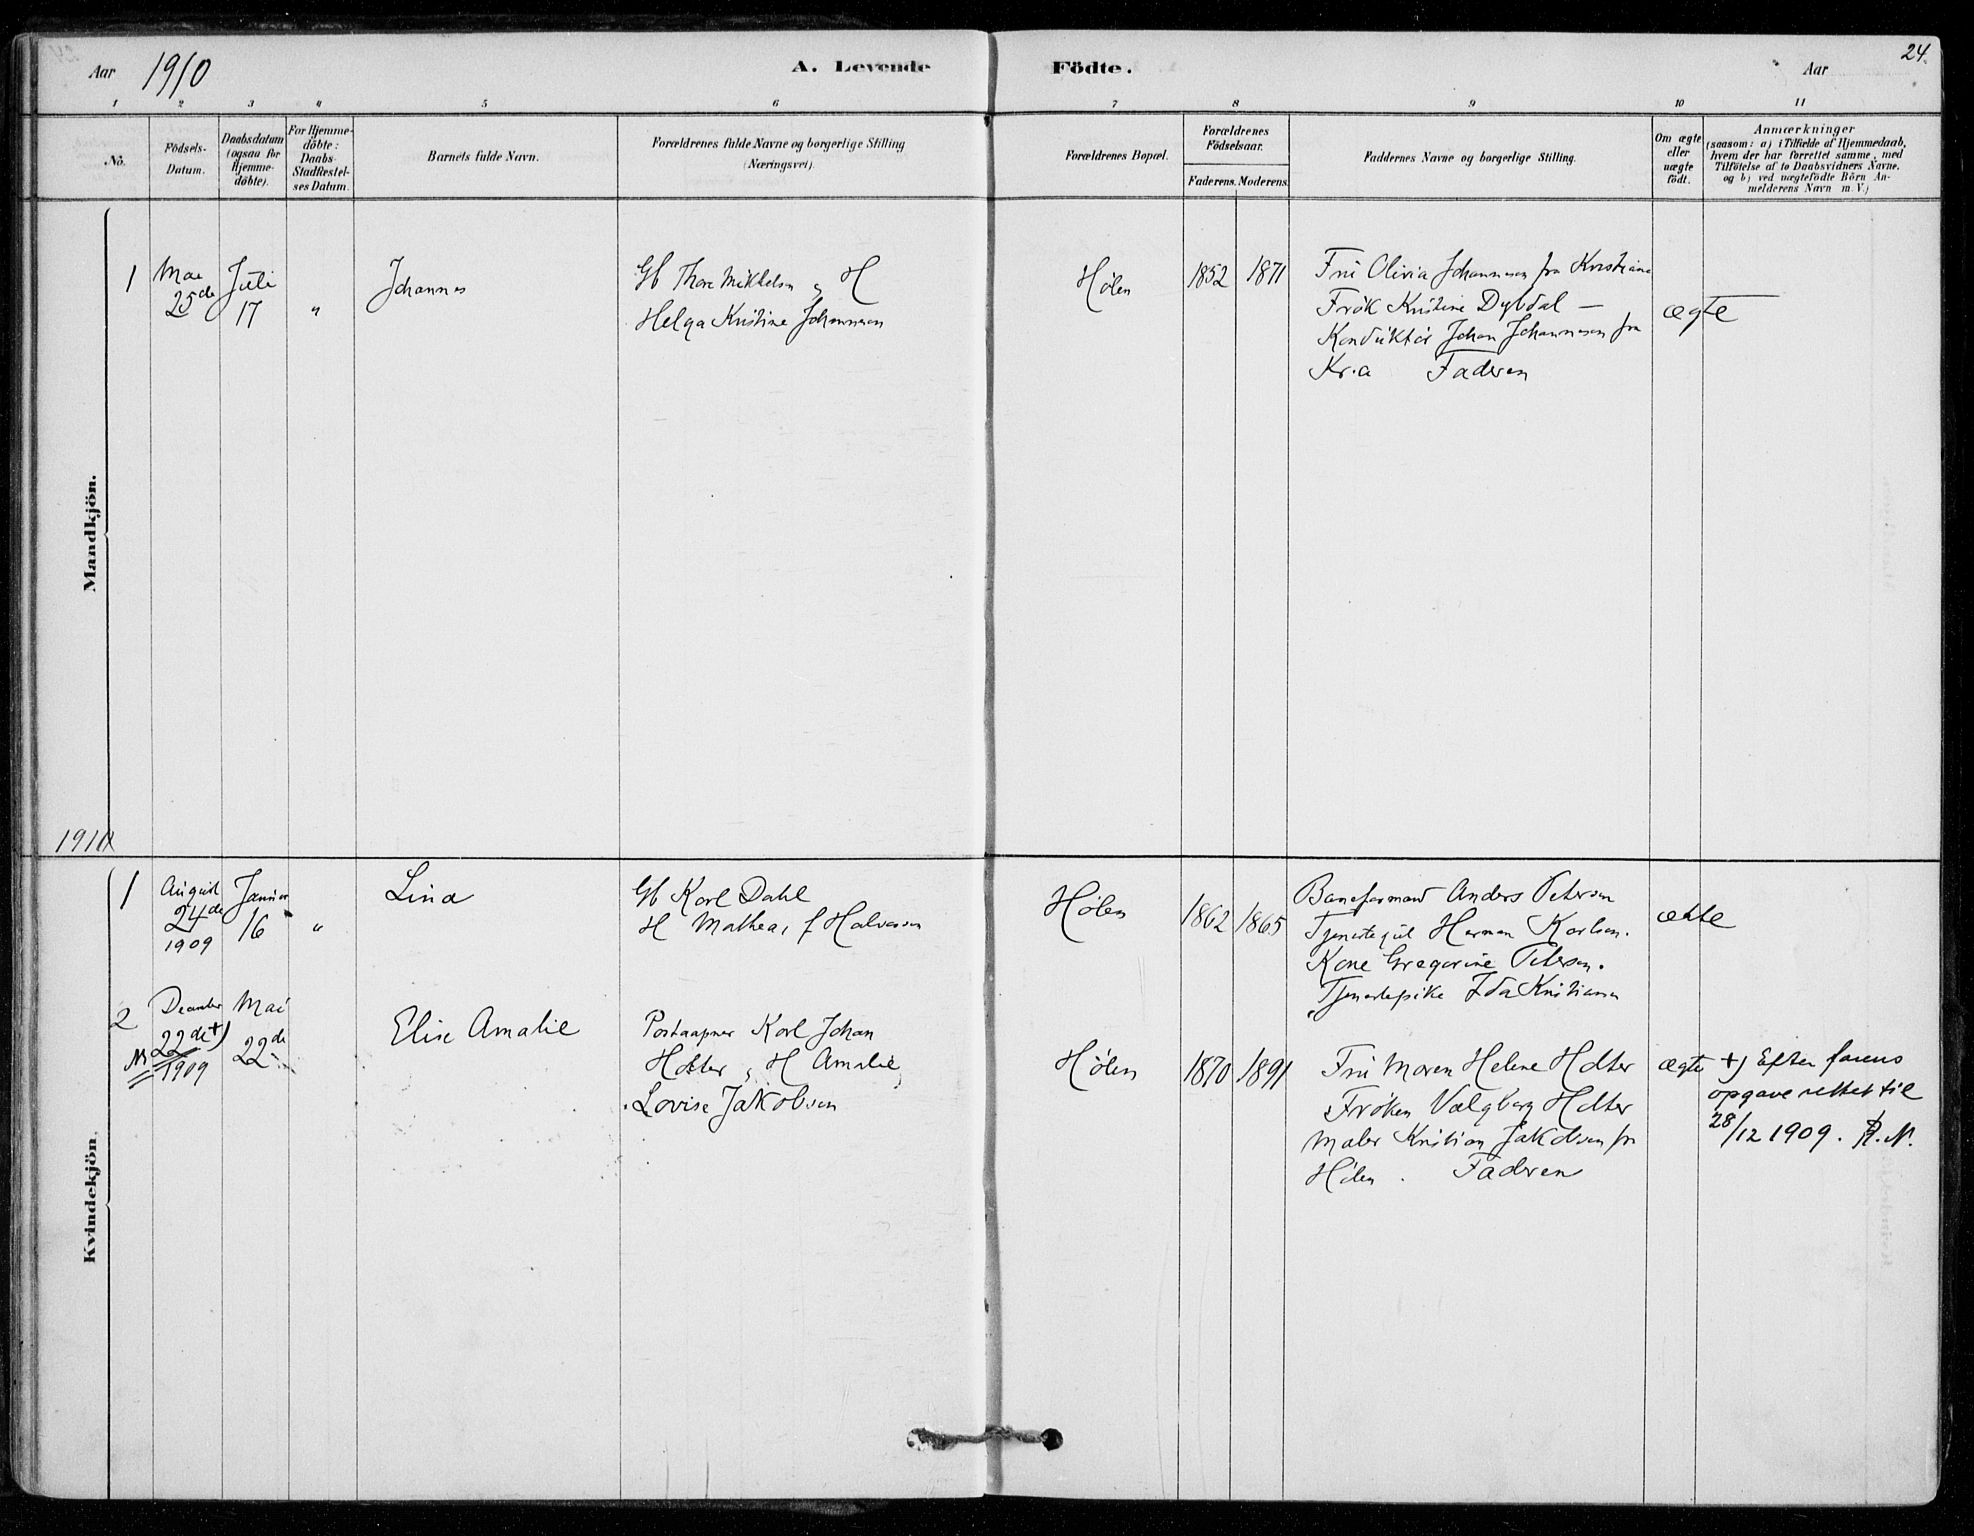 24.
Aar 1910 A. Levende Födte. Aar
1 2 3 4 5 6 7 8 9 10 11
No.
Födsels-
Datum.
Daabsdatum
(ogsaa for
Hjemme-
döbte).
For Hjemme-
döbte:
Daabs-
Stadfæstel-
ses Datum.
Barnets fulde Navn.
Forældrenes fulde Navne og borgerlige Stilling
(Næringsvei).
Forældrenes Bopæl.
Forældrenes
Födselsaar.
Faderens. Moderens.
Faddernes Navne og borgerlige Stilling.
Om ægte
eller
uægte
födt.
Anmærkninger
(saasom: a) i Tilfælde af Hjemmedaab,
hvem der har forrettet samme, med
Tilföielse af to Daabsvidners Navne.
og b) ved uægtefödte Börn An-
melderens Navn m. V.)
Mandkjön.
1
Mai
25de
Juli
17
"
Johannes
Gb Thore Mikkelsen og H
Helga Kristine Johannesen
Hølen
1852 1871
Fru Olivia Johannesen fra Kristiania
Frøk Kristine Dybdal —
Konduktør Johan Johannesen fra
Kr.a Faderen
ægte
1910
Kvindekjön.
1
August
24de
1909
Januar
16
"
Lina
Gb Karl Dahl
H Mathea, f Halvorsen
Hølen
1862 1865
Baneformand Anders Petersen
Tjenestegut Herman Karlsen.
Kone Gregorine Petersen.
Tjenestepike Ida Kristiansen
ekte
2
December
22de +)
1909
Mai
22de
Elise Amalie
Postaapner Karl Johan
Holter og H Amalie
Lovise Jakobsen
Hølen
1870 1891
Fru Maren Helene Holter
Frøken Valgborg Holter
Maler Kristian Jakobsen fra
Hølen. Faderen
ægte
+) Efter farens
opgave rettet til
28/12 1909. R.N.